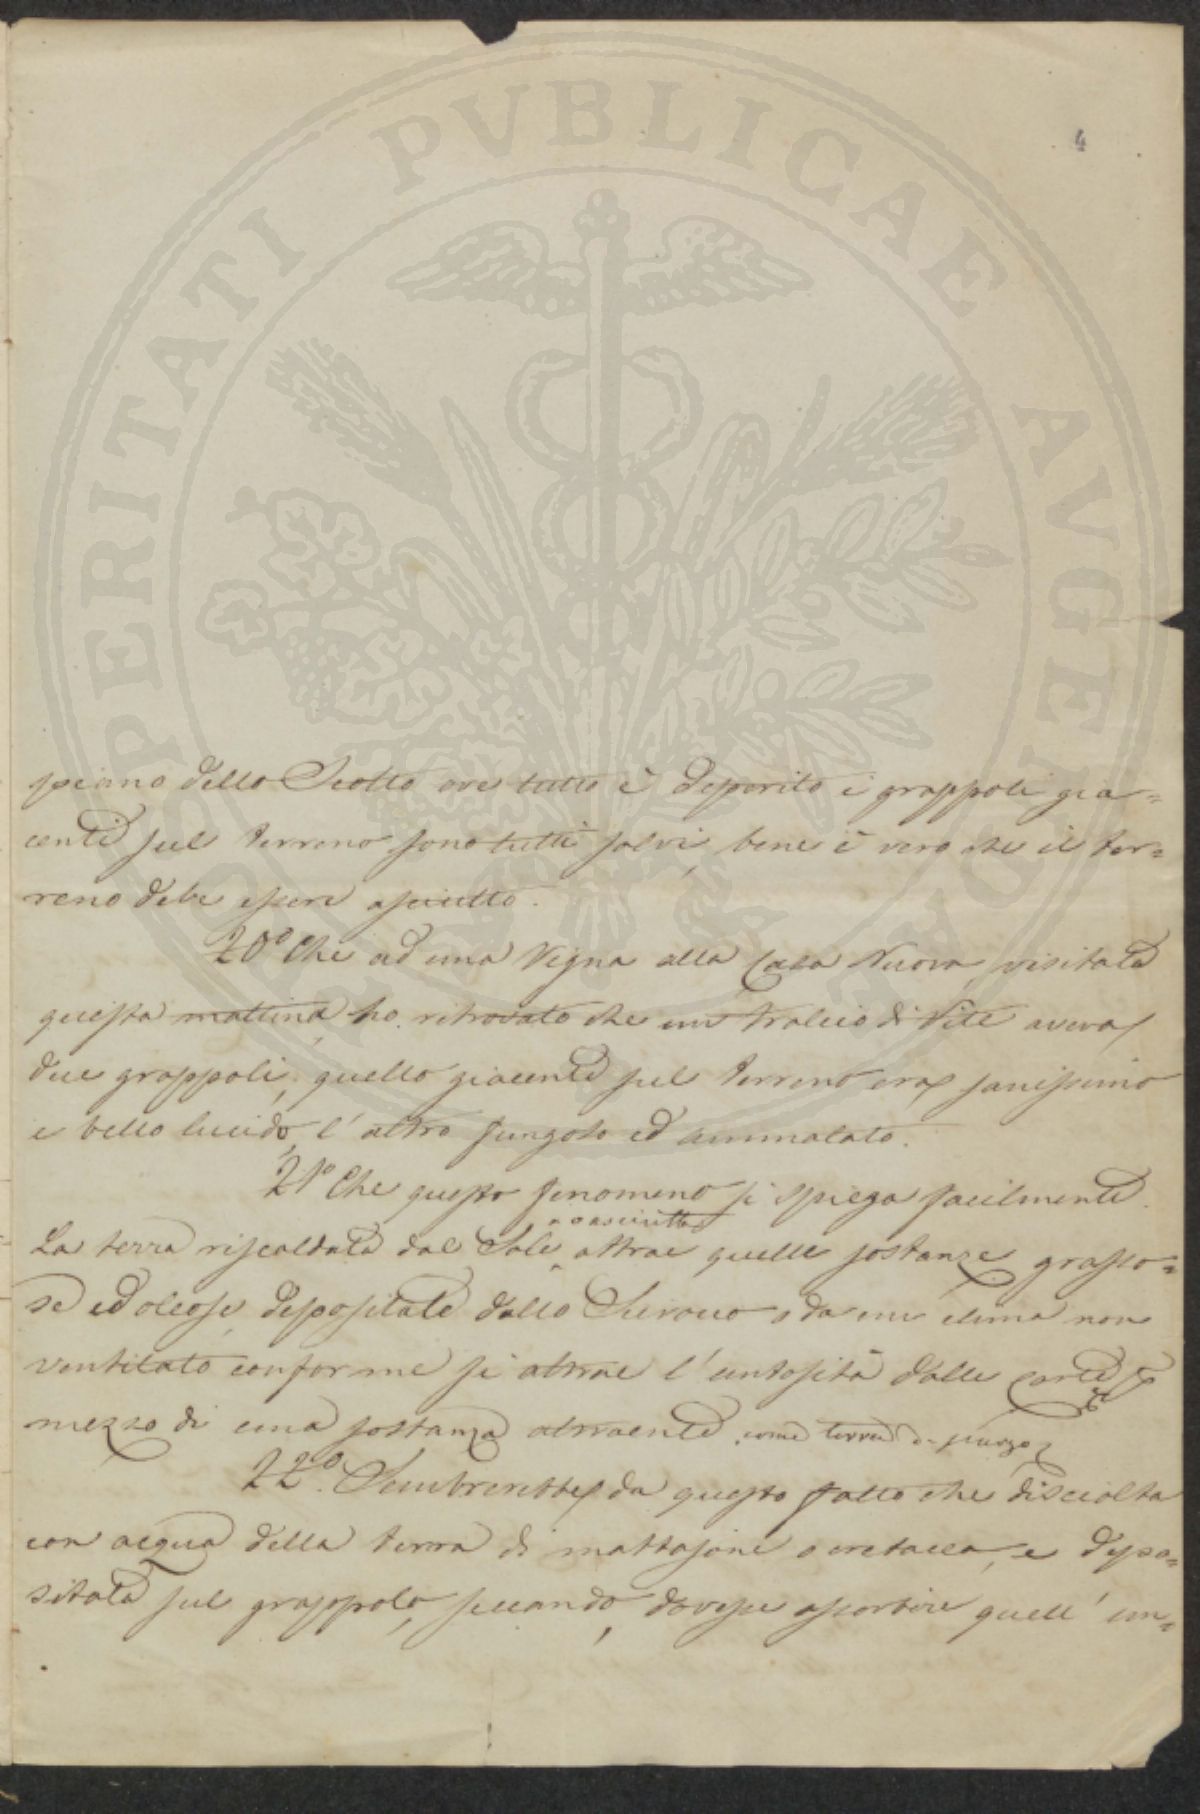 4
PROSPERITATI PVBLICAE AVGENDAE
piano dello Scotto ove tutto è deperito i grappoli gia=
centi sul terreno sono tutti salvi, bene è vero che il ter=
reno debe essere asciutto.
20° Che ad una Vigna alla Casa Nuova, visitata
questa mattina, ho ritrovato che un tralcio di Vite aveva
due grappoli, quello giacente sul terreno era sanissimo
e bello lucido, l'altro fungoso ed ammalato.
21° Che questo fenomeno si spiega facilmente.
o asciutta
La terra riscaldata dal Sole attrae quelle sostanze grasso=
se ed oleose, depositate dallo Scirocco o da un clima non
ventilato conforme si attrae l'untosità dalle carte per
mezzo di una sostanza attraente, come terra di purgo
22° Sembrerebbe da questo fatto che disciolta
con acqua della terra di mattajone o cretacea, e depo=
sitata sul grappolo, seccando, dovesse assorbire quell'un=